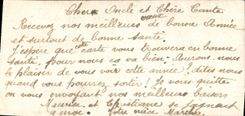 Cher Oncle et Chère Tante
Recevez nos meilleurs vœux de bonne Année
et surtout de bonne santé.
J'espère que cette carte vous trouvera en bonne
santé, pour nous ça va bien. Aurons nous
le plaisir de vous voir cette année? dites nous
quand vous pourrez
en vous envoyant nos meilleurs baisers
Maurice et Christiane se joignent
à moi. Votre nièce